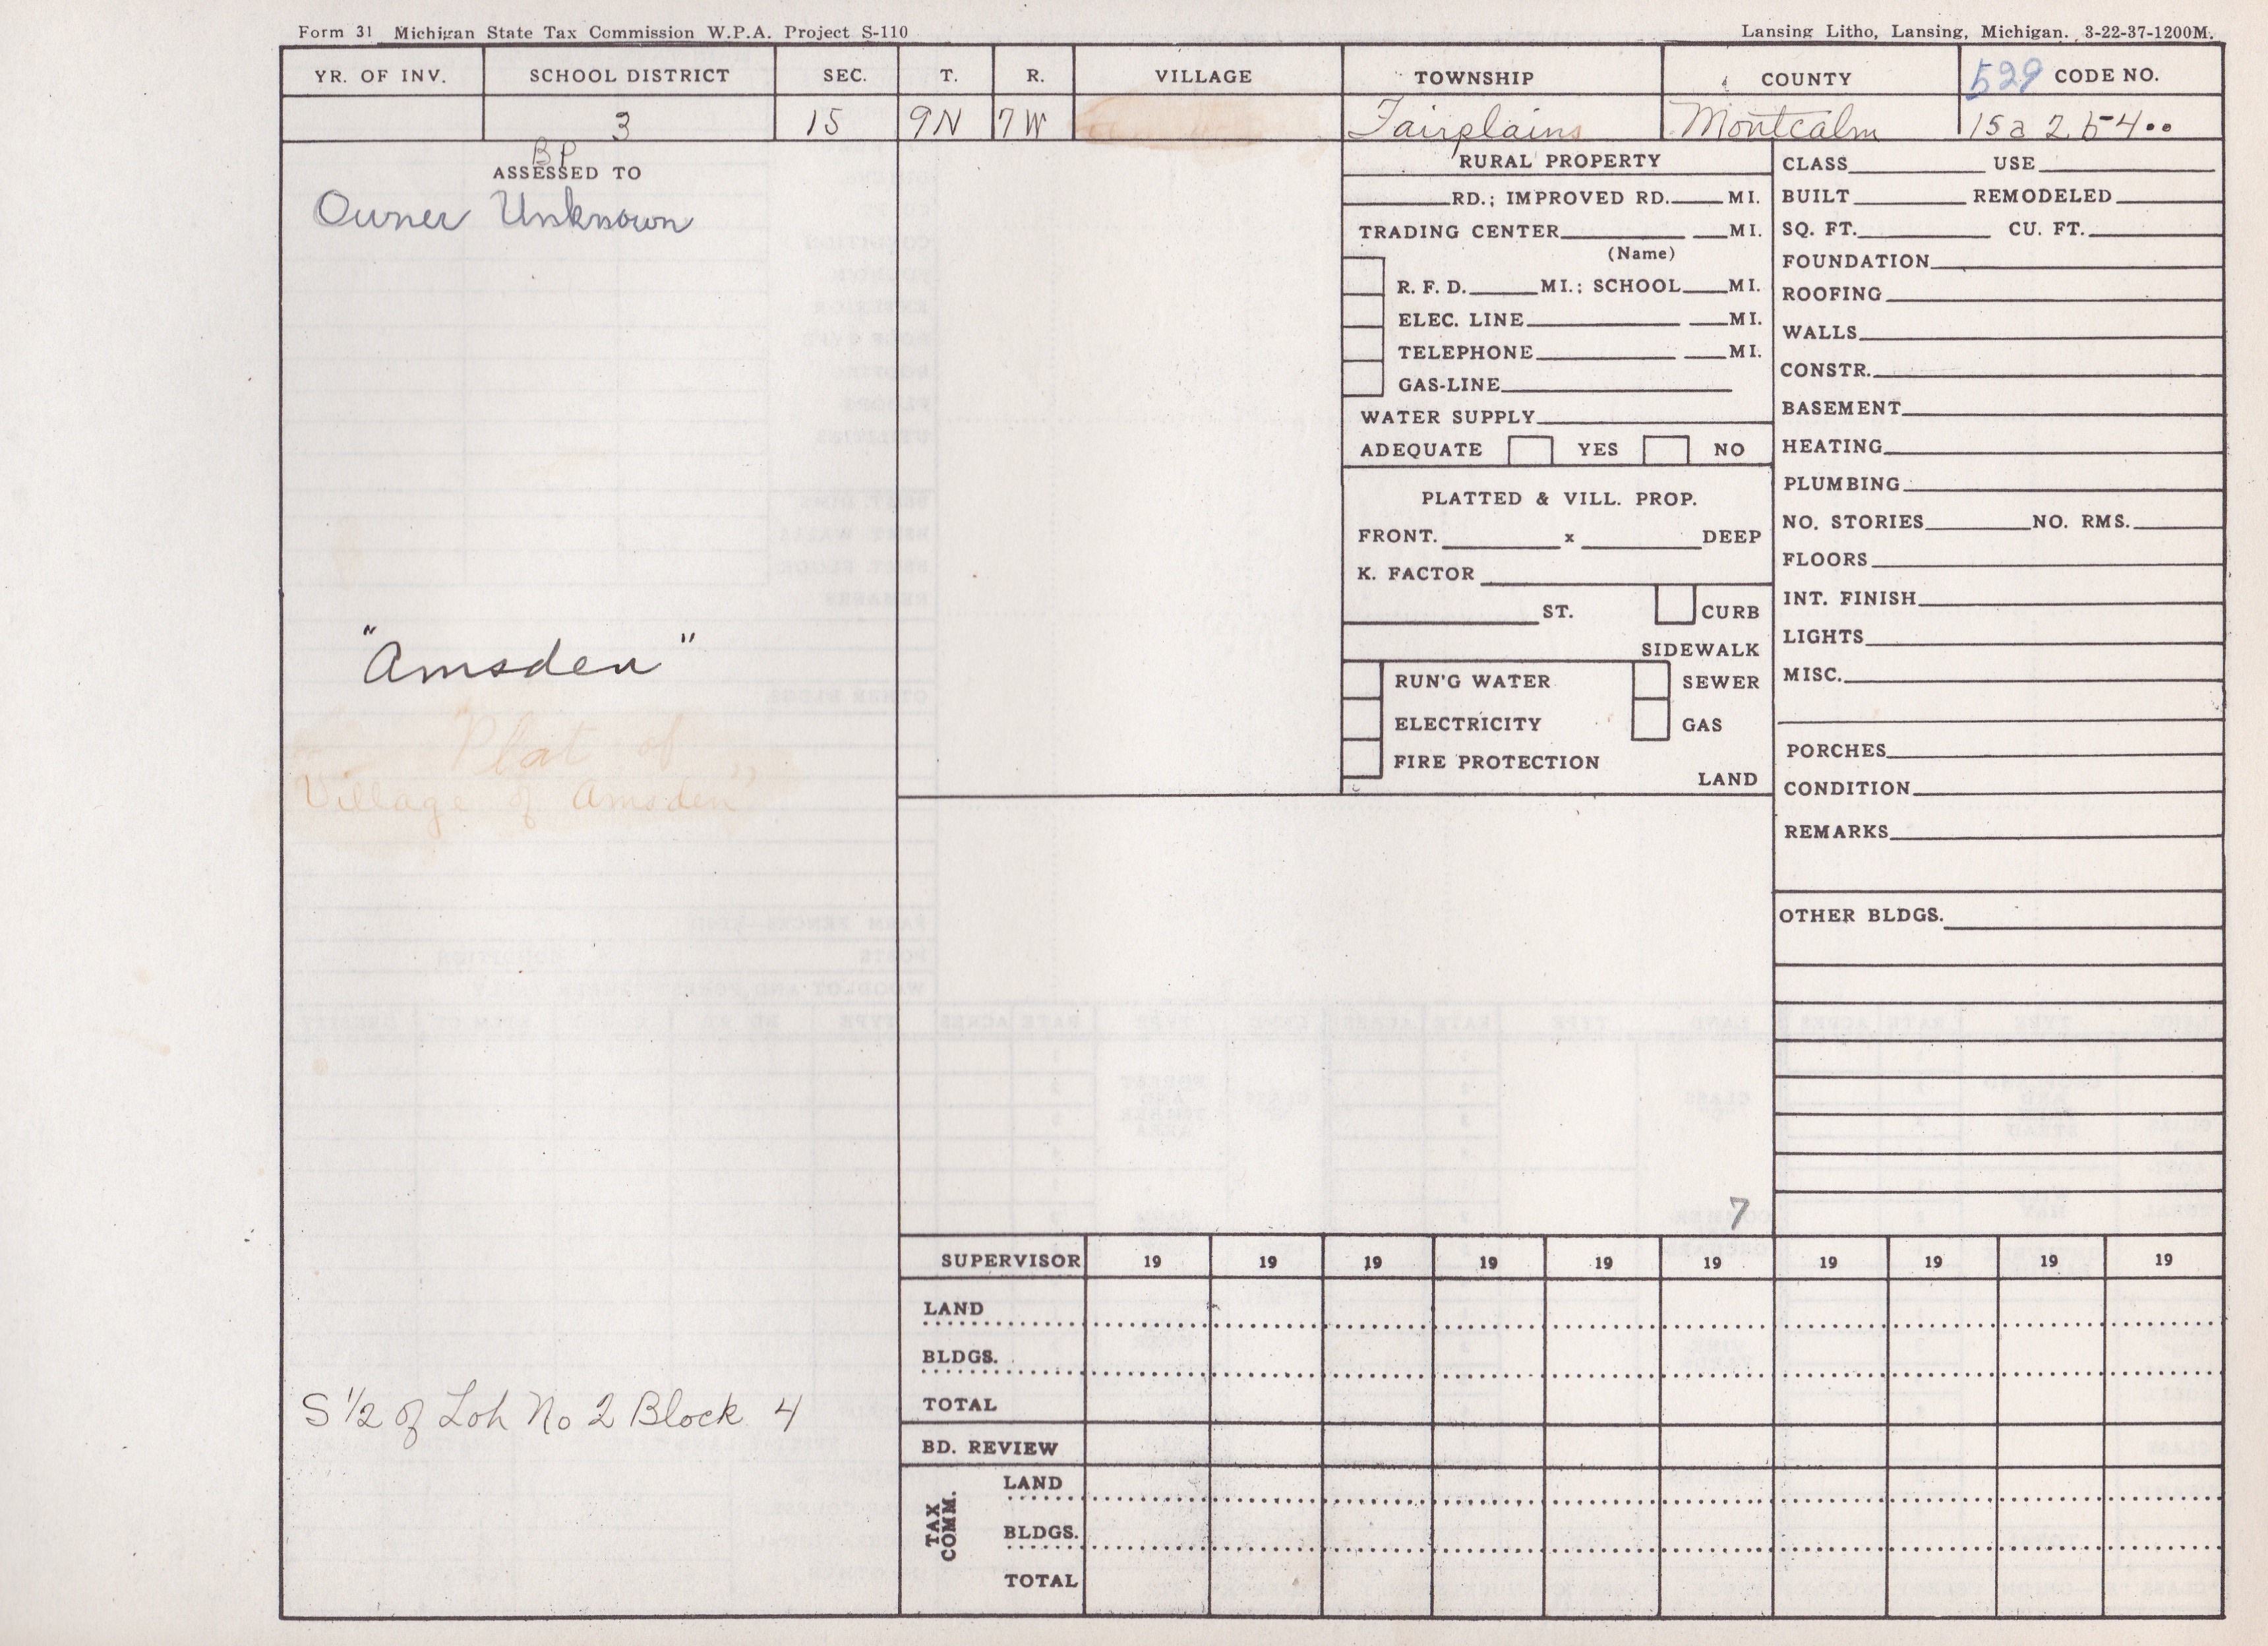 Form 31 Michigan State Tax Commission W.P.A. Project S-110
Lansing Litho, Lansing, Michigan. 3-22-37-1200M.
YR. OF INV. SCHOOL DISTRICT SEC. T. R. VILLAGE TOWNSHIP COUNTY 529 CODE NO.
3 15 9N 7W Fairplains Montcalm 15a 2 b-4..
BP
ASSESSED TO
Owner Unknown
"Amsden"
Plat of
Village of Amsden"
S 1/2 of Loh No 2 Block 4
RURAL PROPERTY
RD.; IMPROVED RD. MI.
TRADING CENTER MI.
(Name)
R. F. D. MI.; SCHOOL MI.
ELEC. LINE MI.
TELEPHONE MI.
GAS-LINE
WATER SUPPLY
ADEQUATE YES NO
PLATTED & VILL. PROP.
FRONT. x DEEP
K. FACTOR
ST. CURB
SIDEWALK
RUN'G WATER SEWER
ELECTRICITY GAS
FIRE PROTECTION
LAND
CLASS USE
BUILT REMODELED
SQ. FT. CU. FT.
FOUNDATION
ROOFING
WALLS
CONSTR.
BASEMENT
HEATING
PLUMBING
NO. STORIES NO. RMS.
FLOORS
INT. FINISH
LIGHTS
MISC.
PORCHES
CONDITION
REMARKS
OTHER BLDGS.
7
SUPERVISOR 19 19 19 19 19 19 19 19 19 19
LAND
BLDGS.
TOTAL
BD. REVIEW
TAX COMM.
LAND
BLDGS.
TOTAL